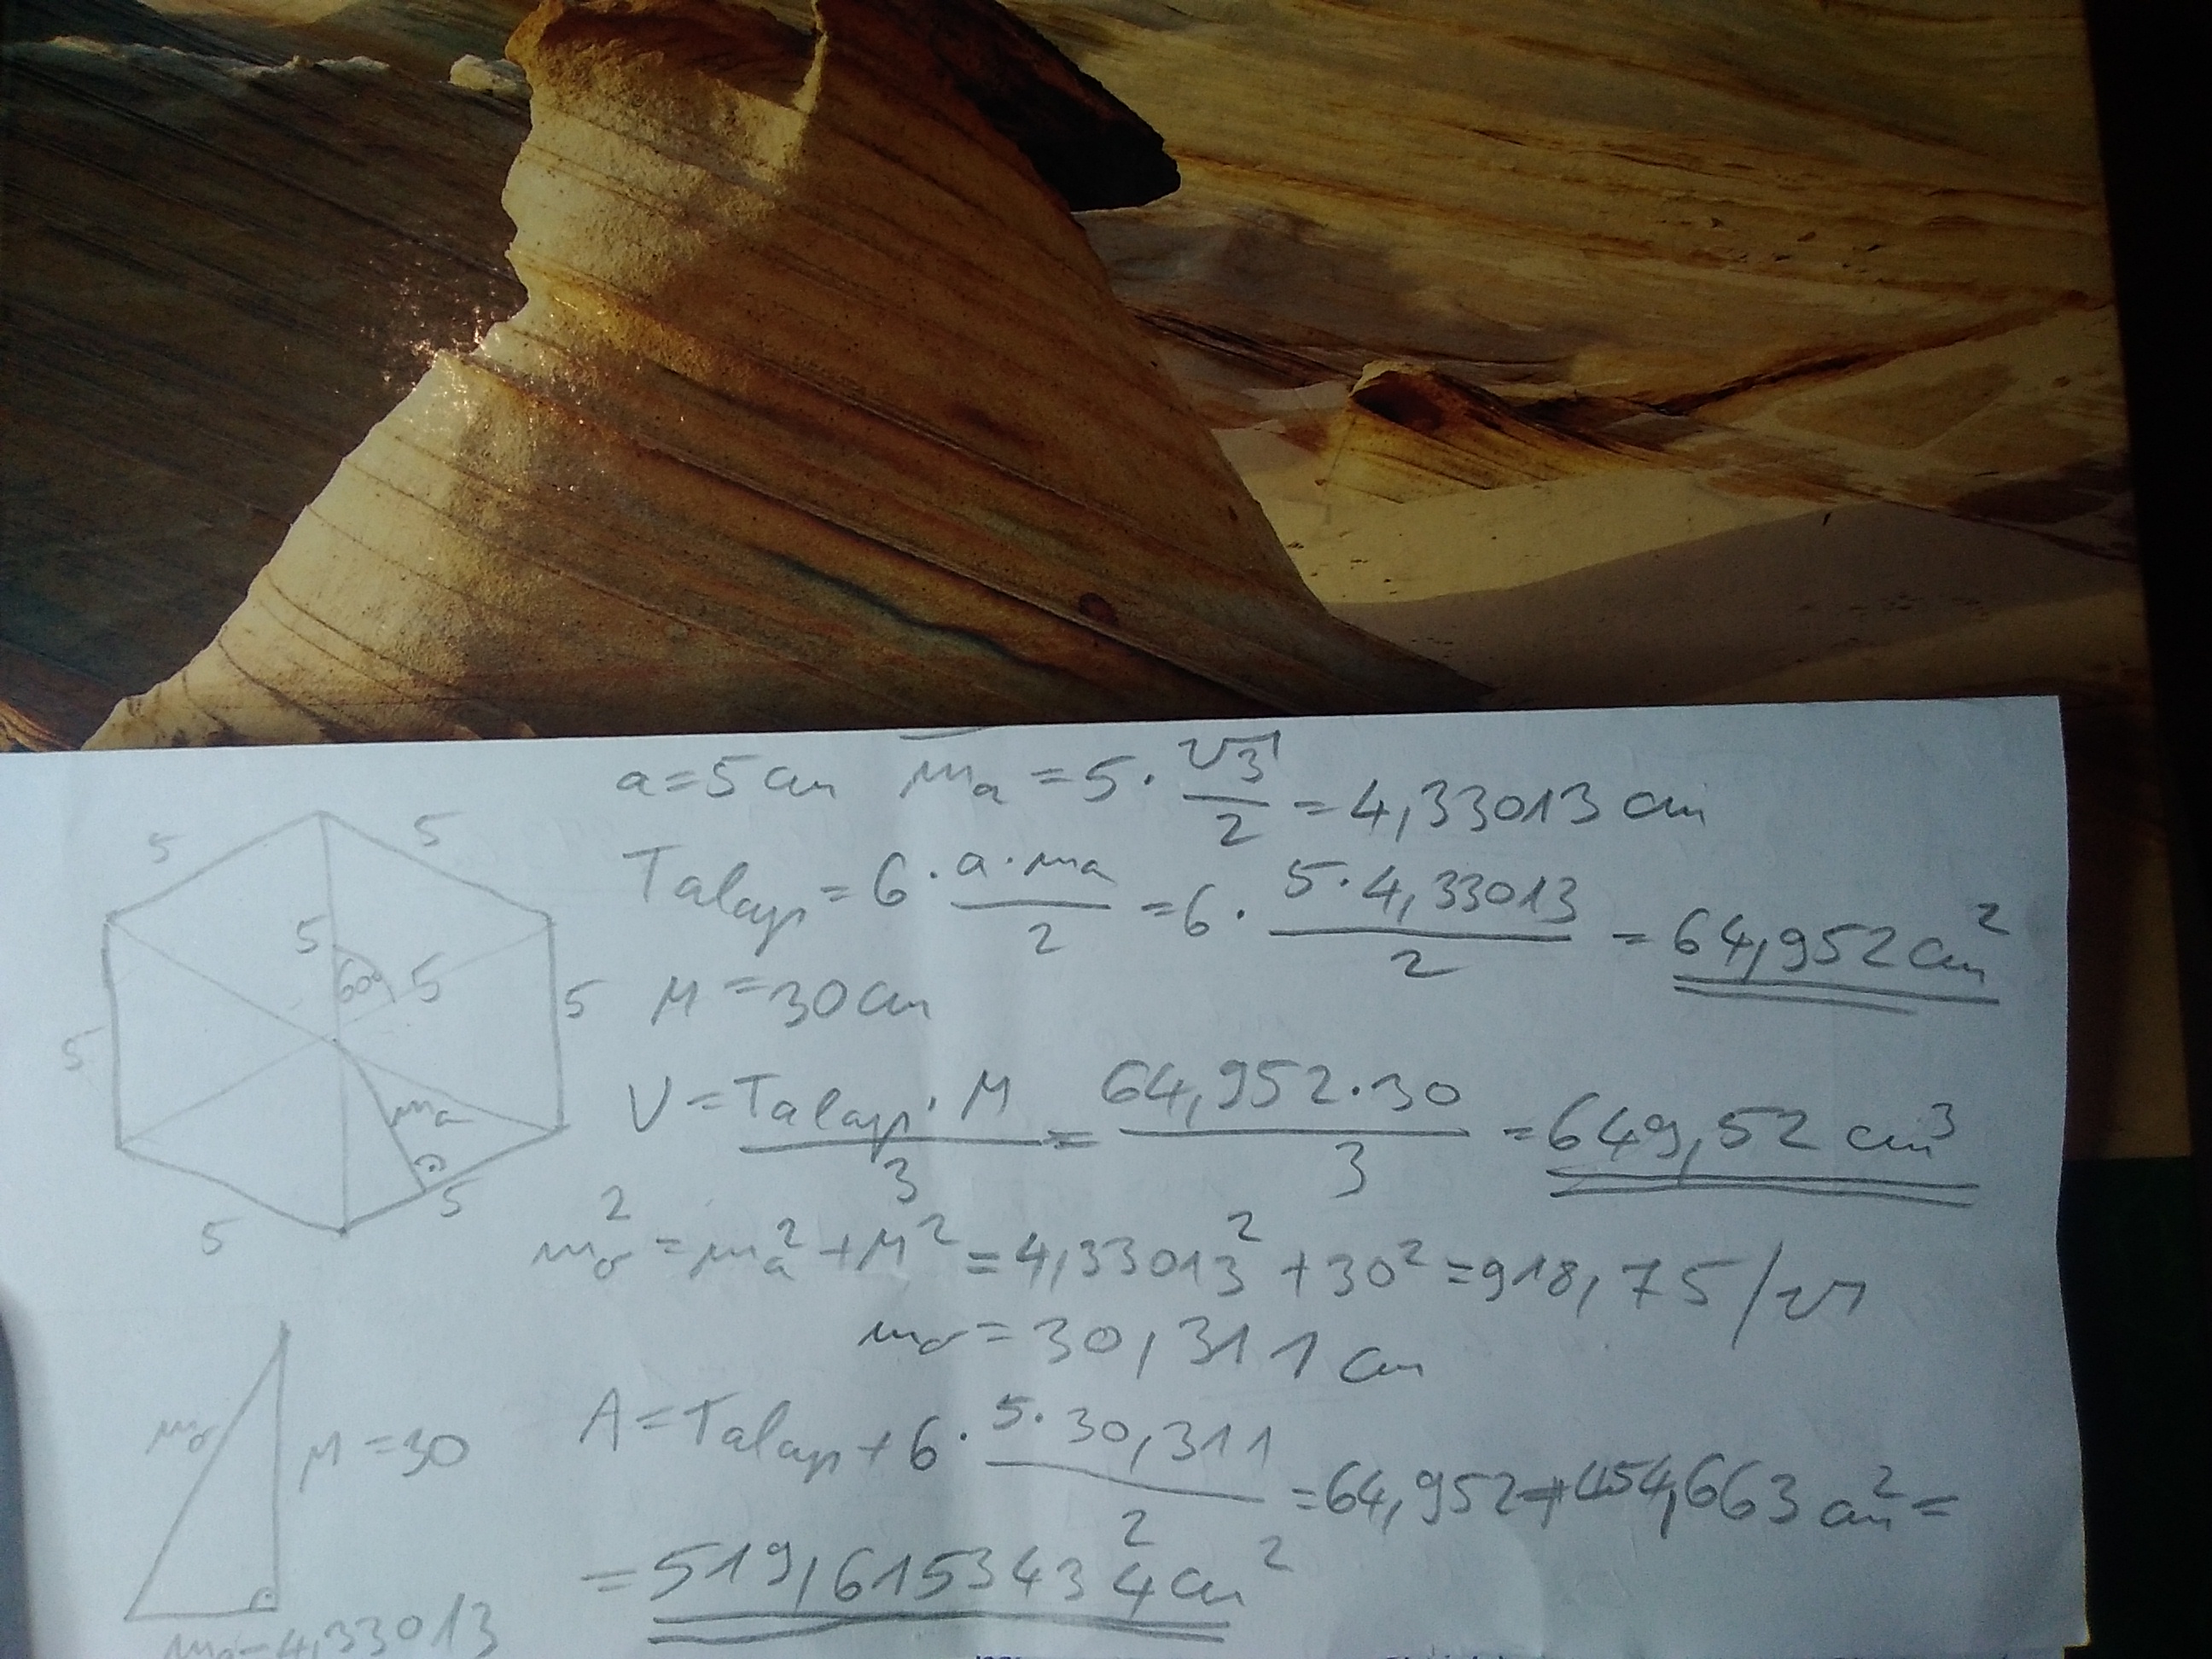 a=5cm m_a = 5 · √3/2 = 4,33013 cm
Talap = 6 · a·m_a/2 = 6 · 5·4,33013/2 = 64,952 cm²
M = 30cm
V = Talap · M/3 = 64,952·30/3 = 649,52 cm³
m_o² = m_a² + M² = 4,33013² + 30² = 918,75 /√
m_o = 30,311 cm
A = Talap + 6 · 5·30,311/2 = 64,952 + 454,663 cm² =
= 519,6153434 cm²
5 5
5 60° 5
5 5
m_a
5 5
m_o M = 30
m_a = 4,33013